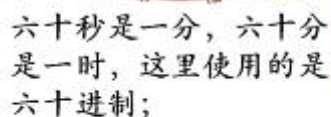 六十秒是一分，六十分
是一时，这里使用的是
六十进制；